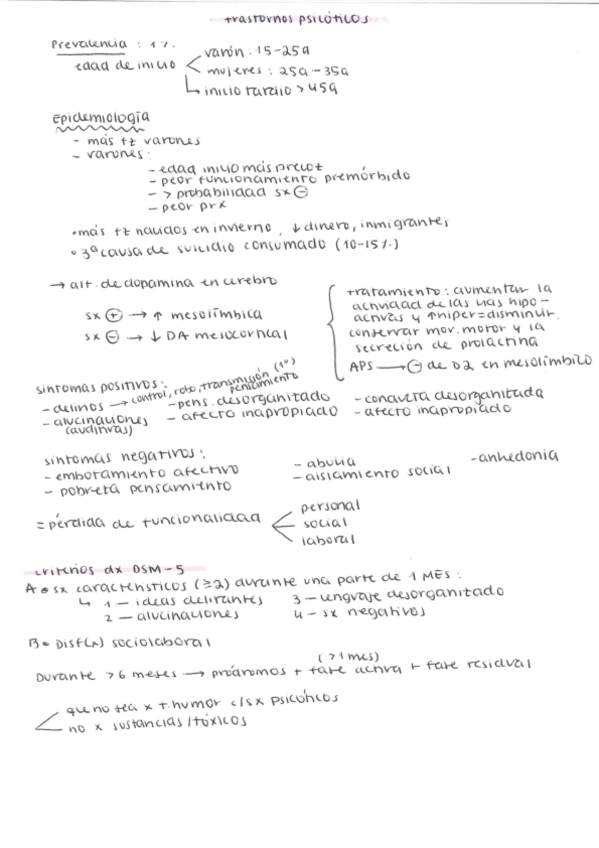 trastornos psicóticos
Prevalencia : 1%
edad de inicio
varón : 15-25a
mujeres : 25a - 35a
inicio tardío > 45a
epidemiología
- más fz varones
- varones :
- edad inicio más precoz
- peor funcionamiento premórbido
- > probabilidad sx ⊖
- peor prx
• más fz nacidos en invierno, ↓ dinero, inmigrantes
• 3ª causa de suicidio consumado (10-15%)
→ alt. de dopamina en cerebro
sx ⊕ → ↑ mesolímbica
sx ⊖ → ↓ DA mesocortical
tratamiento : aumentar la
actividad de las vías hipo-
activas y ↑ hiper = disminuir.
conservar mov. motor y la
secreción de prolactina
APS → ⊖ de D2 en mesolímbico
síntomas positivos :
- delirios → control, robo, transmisión (1º) pensamiento
- alucinaciones (auditivas)
- pens. desorganizado
- afecto inapropiado
- conducta desorganizada
- afecto inapropiado
síntomas negativos :
- embotamiento afectivo
- pobreza pensamiento
- abulia
- aislamiento social
- anhedonia
= pérdida de funcionalidad
personal
social
laboral
criterios dx DSM-5
A = sx característicos (≥2) durante una parte de 1 MES :
1 - ideas delirantes
2 - alucinaciones
3 - lenguaje desorganizado
4 - sx negativos
B = Disf(x) sociolaboral
Durante > 6 meses → pródromos + fase activa (> 1 mes) + fase residual
que no sea x t. humor c/sx psicóticos
no x sustancias / tóxicos